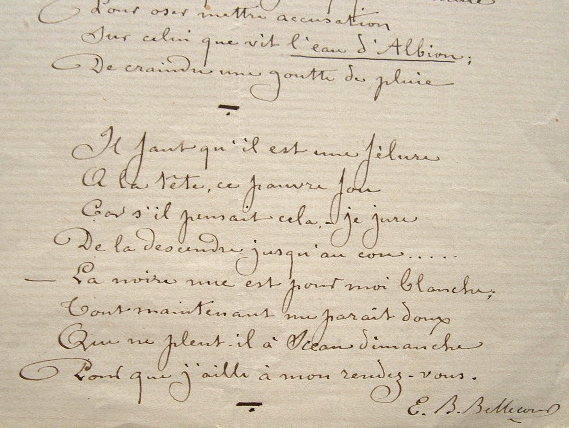 Pour oser mettre accusation
Sur celui que vit l'eau d'Albion;
De craindre une goutte de pluie
Il faut qu'il est une fêlure
A la tête, ce pauvre fou
Car s'il pensait cela, - je jure
De la descendre jusqu'au cou.....
- La noire nue est pour moi blanche;
Tout maintenant me parait doux
Que ne pleut-il à Sceau dimanche
Pour que j'aille à mon rendez-vous.
E. B. Bellecour